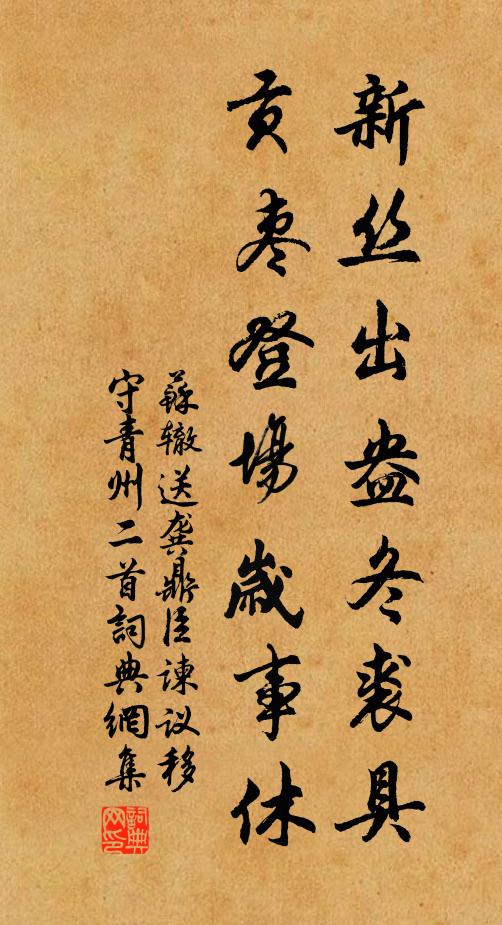 新丝出盎冬裘具
贡枣登場歳事休
蘇辙送龚鼎臣谏议移
守青州二首詞典網集
詞典网印